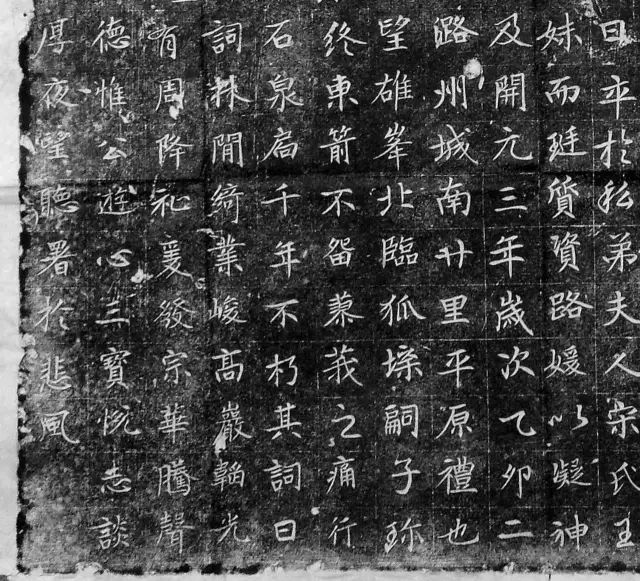 日卒於私弟夫人宗氏王
妹而琎質資路媛以凝神
及開元三年歲次乙卯二
潞州城南廿里平原禮也
望雄峯北臨狐堺嗣子珎
終東箭不留蓼莪之痛行
石泉扃千年不朽其詞曰
詞林閒綺業峻高巖韜光
有周降祉爰發宗華騰聲
德惟公遊心三寶悅志談
厚夜望聽署於悲風